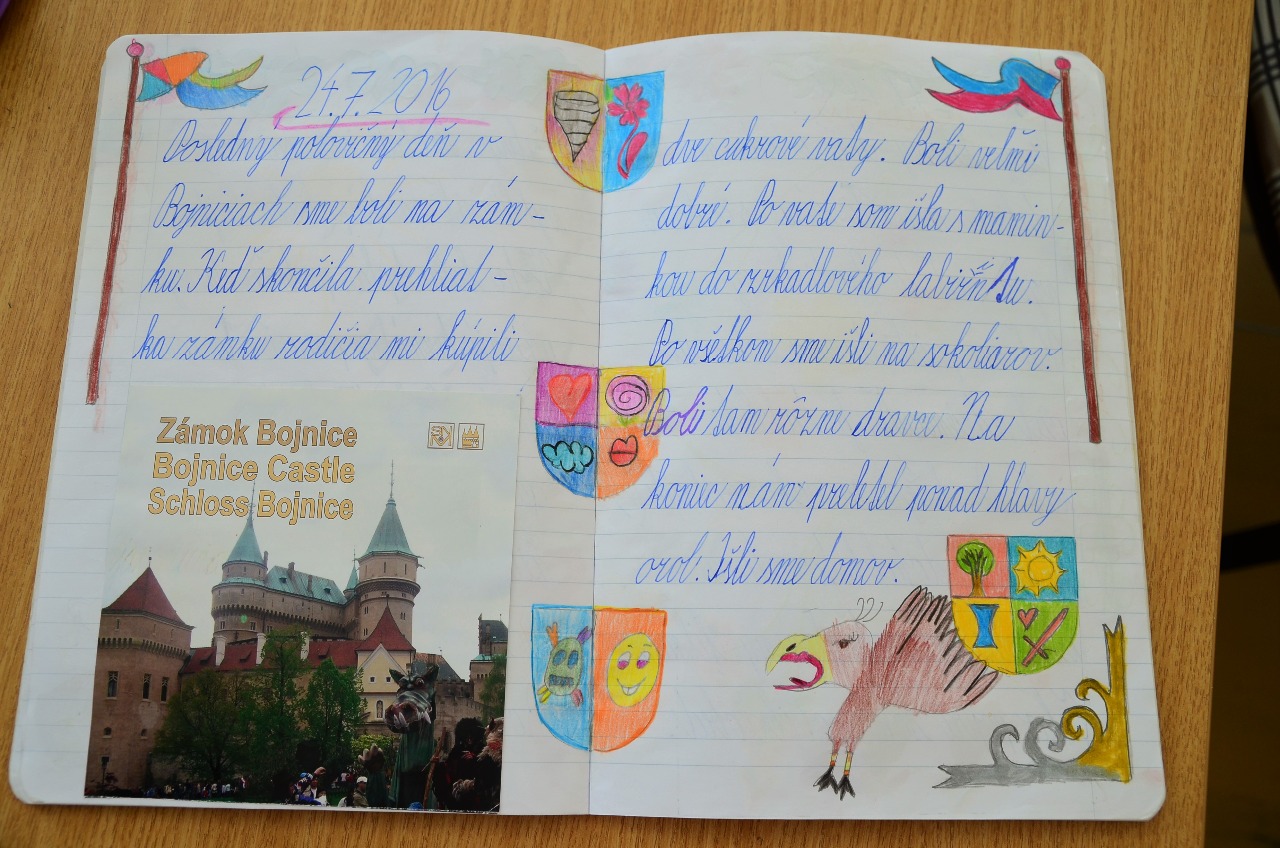 24.7.2016
Posledný polovičný deň v
Bojniciach sme boli na zám-
ku. Keď skončila prehliat-
ka zámku rodičia mi kúpili
Zámok Bojnice
Bojnice Castle
Schloss Bojnice
dve cukrové vaty. Boli veľmi
dobré. Po vate som išla s mamin-
kou do zrkadlového labirintu.
Po všetkom sme išli na sokoliarov.
Boli tam rôzne dravce. Na
koniec nám preletel ponad hlavy
orol. Išli sme domov.